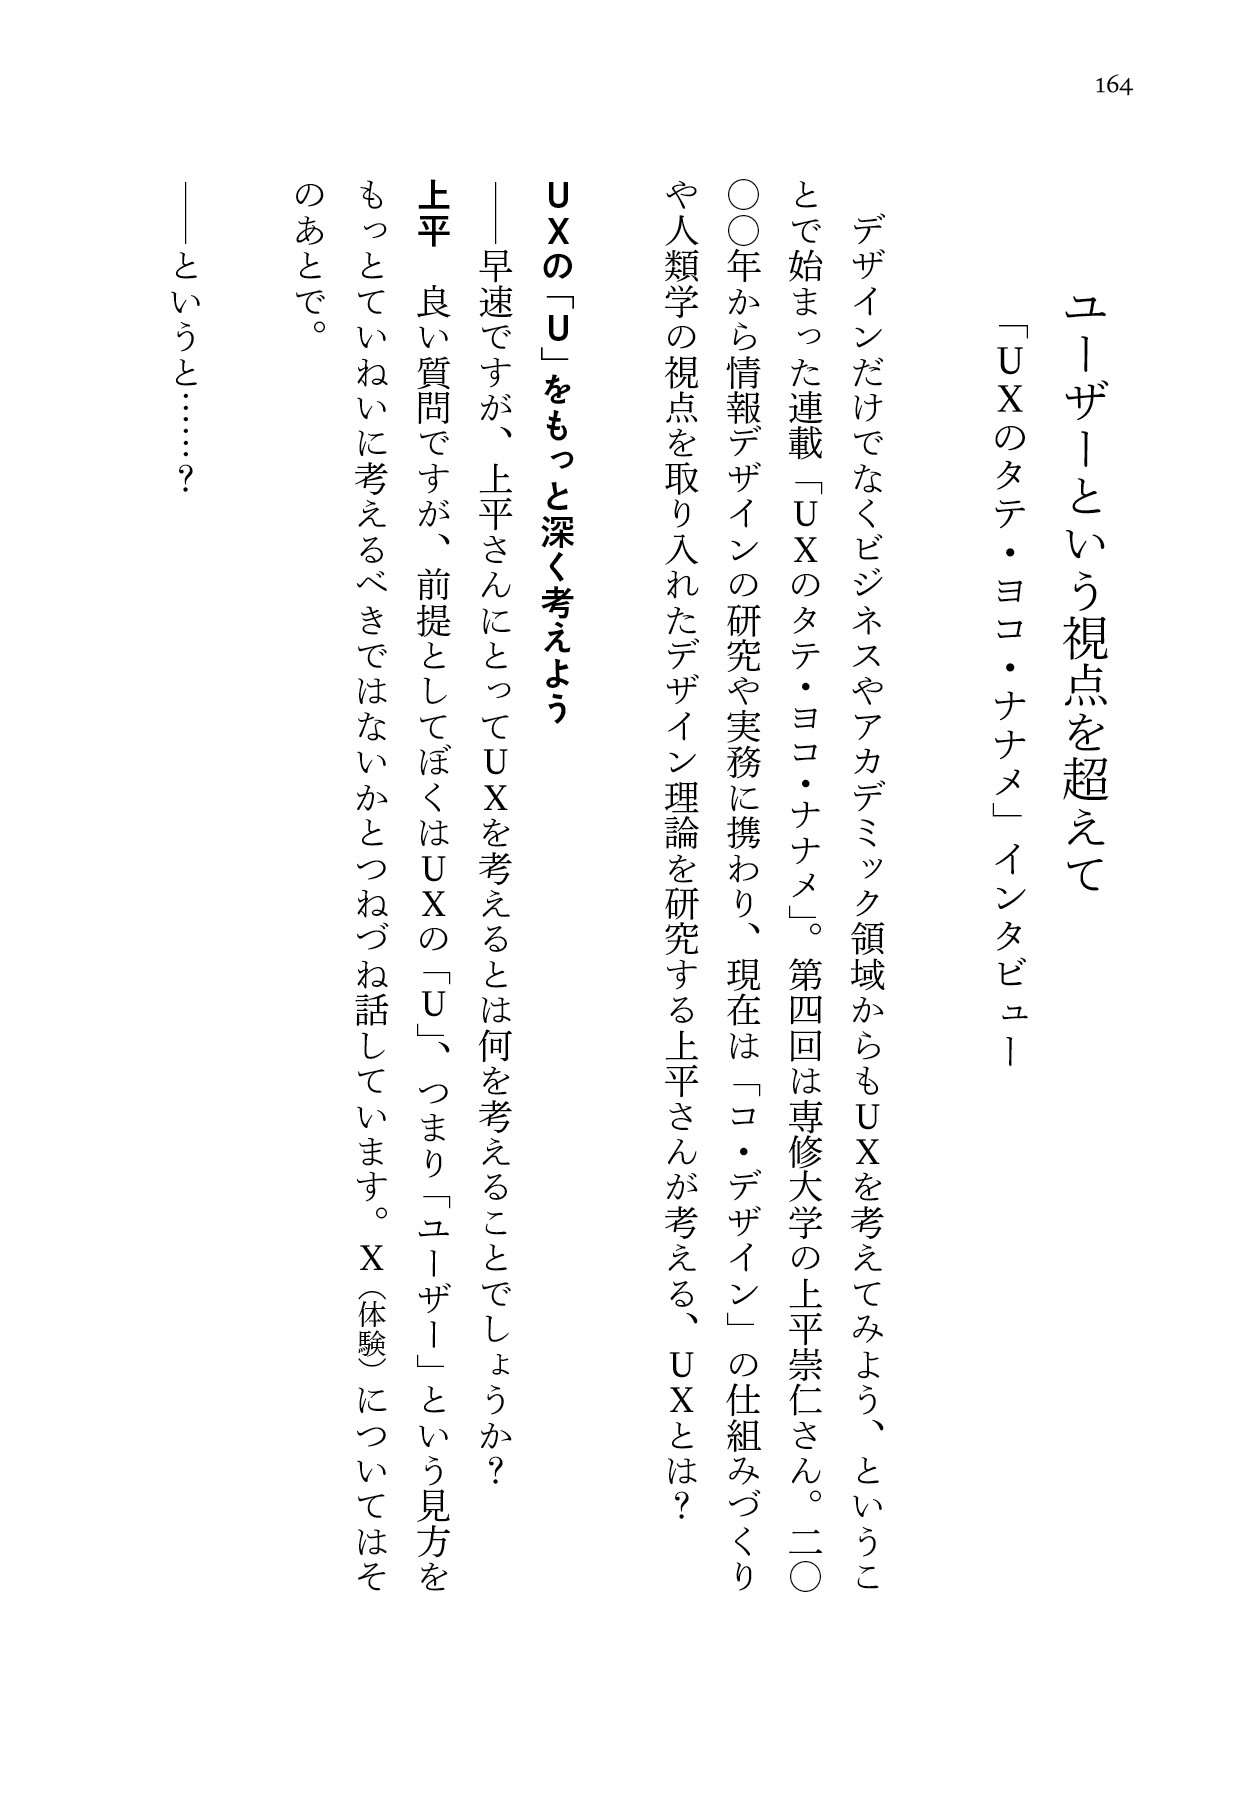 164
ユーザーという視点を超えて
「UXのタテ・ヨコ・ナナメ」インタビュー
デザインだけでなくビジネスやアカデミック領域からもUXを考えてみよう、というこ
とで始まった連載「UXのタテ・ヨコ・ナナメ」。第四回は専修大学の上平崇仁さん。二〇
〇〇年から情報デザインの研究や実務に携わり、現在は「コ・デザイン」の仕組みづくり
や人類学の視点を取り入れたデザイン理論を研究する上平さんが考える、UXとは?
UXの「U」をもっと深く考えよう
――早速ですが、上平さんにとってUXを考えるとは何を考えることでしょうか?
上平　良い質問ですが、前提としてぼくはUXの「U」、つまり「ユーザー」という見方を
もっとていねいに考えるべきではないかとつねづね話しています。X(体験)についてはそ
のあとで。
――というと……?